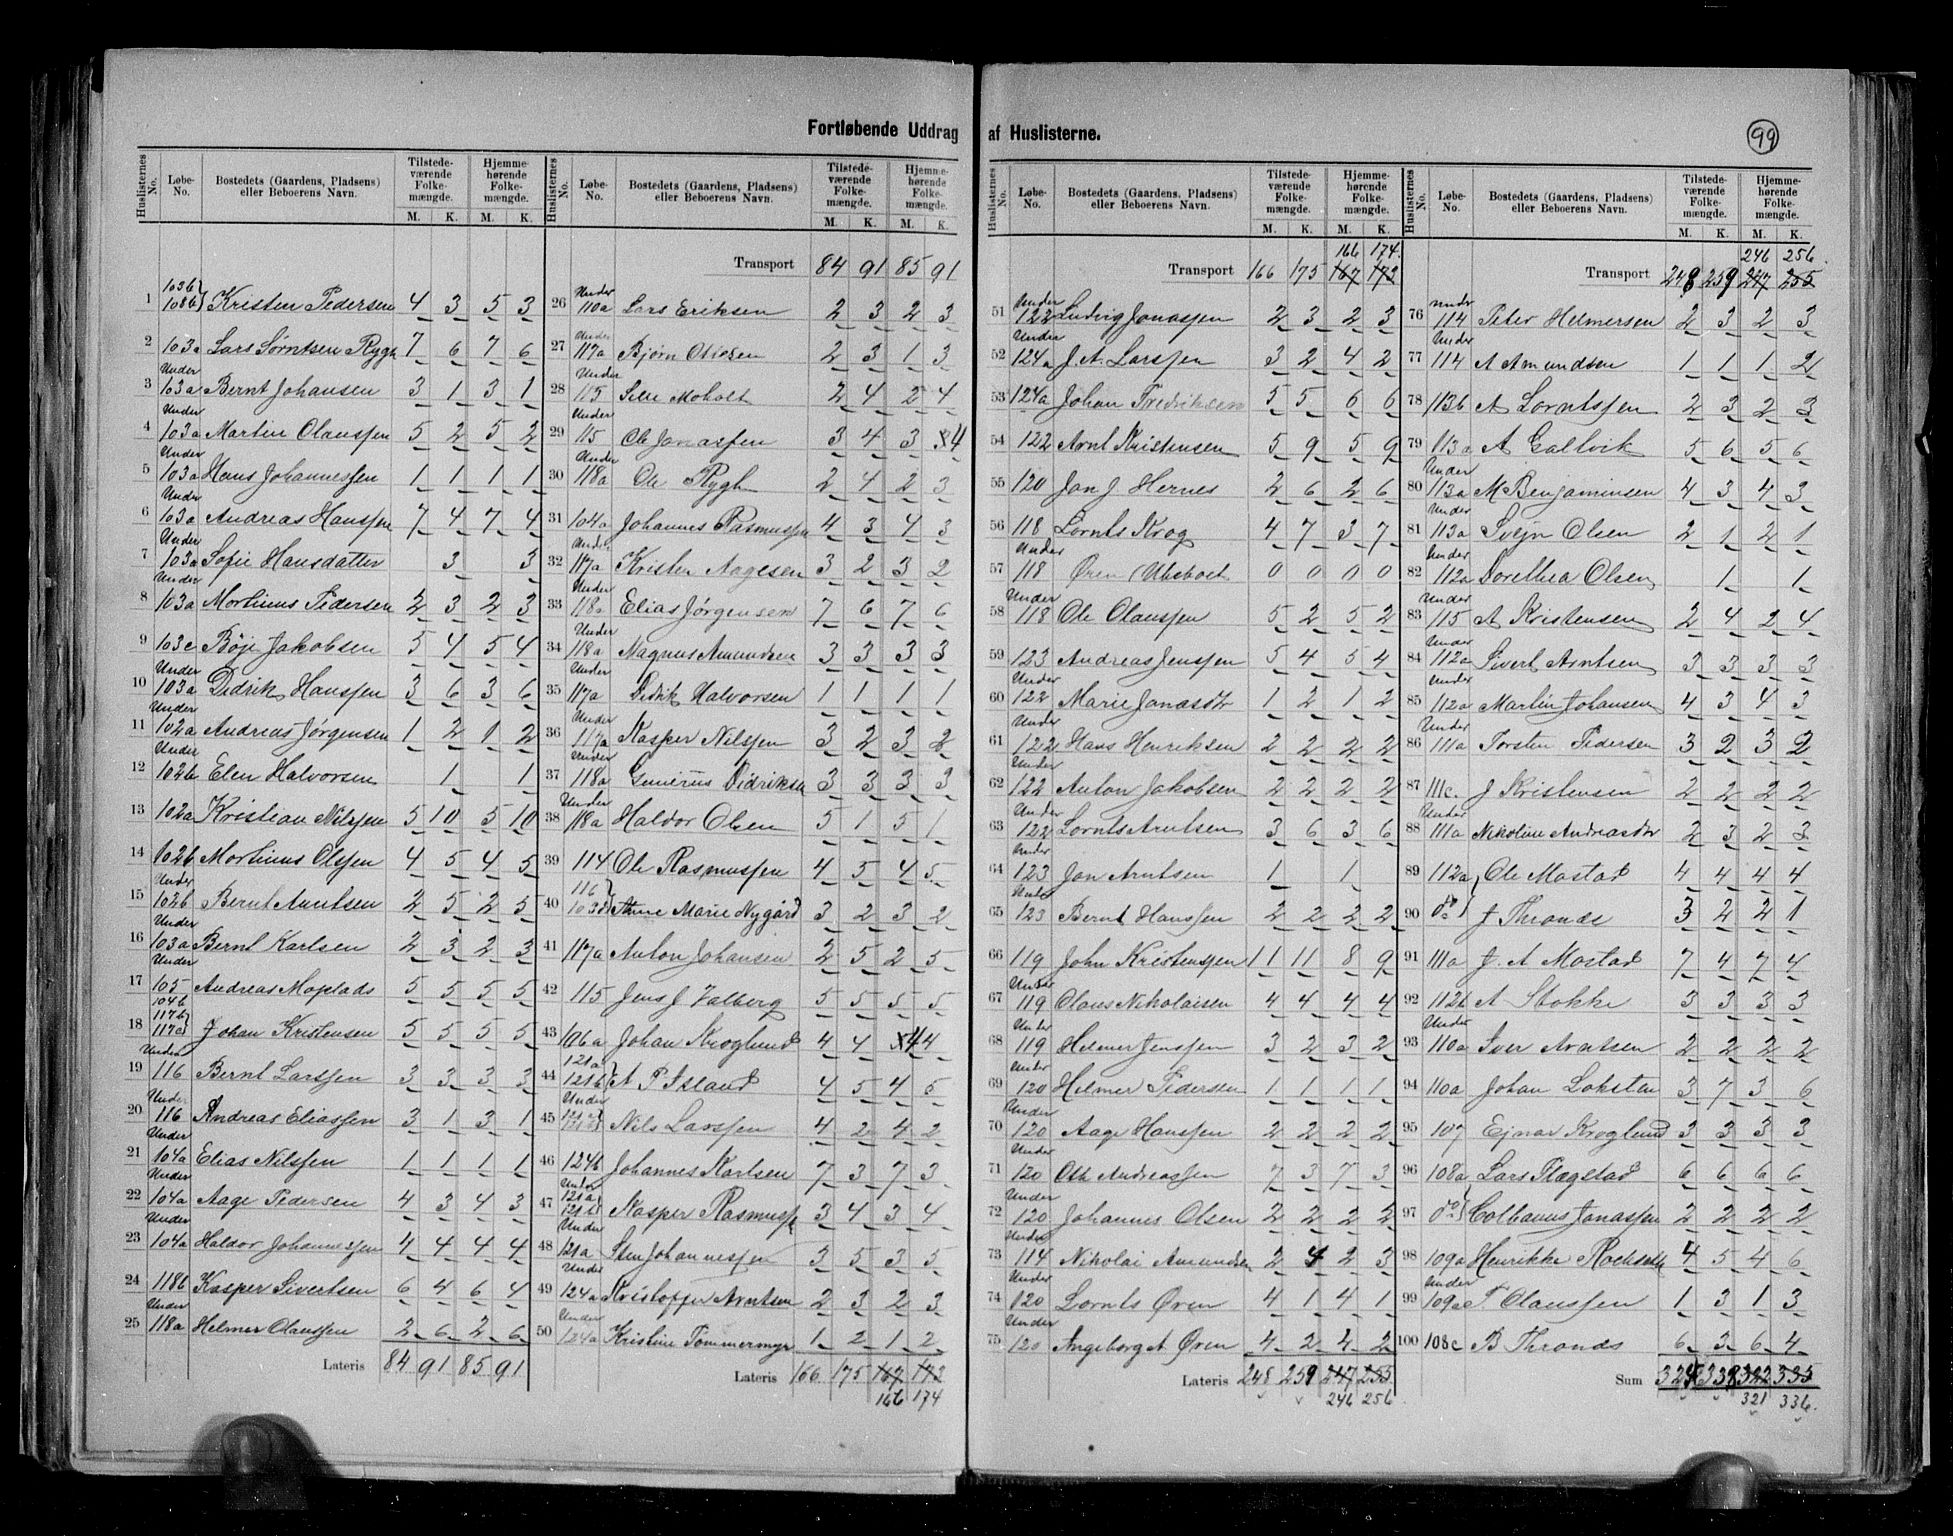 Fortløbende Uddrag af Huslisterne.
99
Huslisternes No. Løbe-No. Bostedets (Gaardens, Pladsens) eller Beboerens Navn. Tilstedeværende Folkemængde. M. K. Hjemmehørende Folkemængde. M. K.
1 103b 108b Kristen Pedersen 4 3 5 3
2 103a Lars Sørntsen Rygh 7 6 7 6
3 Under 103a Bernt Johansen 3 1 3 1
4 Under 103a Martin Olaussen 5 2 5 2
5 Under 103a Hans Johannessen 1 1 1 1
6 Under 103a Andreas Hanssen 7 4 7 4
7 Under 103a Sofie Hansdatter 3 3
8 Under 103a Mortinus Pedersen 2 3 2 3
9 103c Bøje Jakobsen 5 4 5 4
10 Under 103a Didrik Hanssen 3 6 3 6
11 Under 102a Andreas Jørgensen 1 2 1 2
12 Under 102b Elen Halvorsen 1 1
13 102a Kristian Nilssen 5 10 5 10
14 102b Mortinus Olssen 4 5 4 5
15 Under 102b Bernt Arntsen 2 5 2 5
16 Under 103a Bernt Karlsen 2 3 2 3
17 Under 105 Andreas Moplads 5 5 5 5
18 104b 117b 117c Johan Kristensen 5 5 5 5
19 Under 116 Bernt Larssen 3 3 3 3
20 Under 116 Andreas Eliassen 3 1 3 1
21 Under 104a Elias Nilssen 1 1 1 1
22 Under 104a Aage Pedersen 4 3 4 3
23 Under 104a Haldor Johannessen 4 4 4 4
24 118b Kasper Sivertsen 6 4 6 4
25 Under 118a Helmer Olaussen 2 6 2 6
Lateris 84 91 85 91
Huslisternes No. Løbe-No. Bostedets (Gaardens, Pladsens) eller Beboerens Navn. Tilstedeværende Folkemængde. M. K. Hjemmehørende Folkemængde. M. K.
Transport 84 91 85 91
26 Under 110a Lars Eriksen 2 3 2 3
27 Under 117a Bjørn Olsen 2 3 1 3
28 Under 115 Moholt 2 4 2 4
29 Under 115 Ole Jonassen 3 4 3 4
30 Under 118a Ole Rygh 2 4 2 3
31 104a Johannes Rasmussen 4 3 4 3
32 Under 117a Krister Aagesen 3 2 3 2
33 Under 118a Elias Jørgensen 7 6 7 6
34 Under 118a Magnus Amundsen 3 3 3 3
35 Under 117a Didrik Halvorsen 1 1 1 1
36 Under 117a Kasper Nilssen 3 2 3 2
37 Under 118a Didriksen 3 3 3 3
38 Under 118a Haldor Olsen 5 1 5 1
39 114 Ole Rasmussen 4 5 4 5
40 116 103d Anne Marie Nygård 3 2 3 2
41 117a Anton Johansen 2 5 2 5
42 115 Jens J Valberg 5 5 5 5
43 106a Johan Kroglund 4 4 4 4
44 121a 121b A P Island 4 5 4 5
45 Under 121a 121b Nils Larssen 4 2 4 2
46 124b Johannes Karlsen 7 3 7 3
47 Under 121a 121b Kasper Rasmussen 3 4 3 4
48 Under 121a Sten Johannessen 3 5 3 5
49 Under 124a Kristoffer Arntsen 2 3 2 3
50 Under 124a Kristine Tømmermyr 1 2 1 2
Lateris 166 175 167 173
166 174
Huslisternes No. Løbe-No. Bostedets (Gaardens, Pladsens) eller Beboerens Navn. Tilstedeværende Folkemængde. M. K. Hjemmehørende Folkemængde. M. K.
166 174
Transport 166 175 167 173
51 Under 122 Ludvig Jonassen 2 3 2 3
52 Under 124a J. A. Larssen 3 2 4 2
53 124a Johan Fredriksen 5 5 6 6
54 122 Arnt Kristensen 5 9 5 9
55 120 Jon J Hernes 2 6 2 6
56 118 Lornts Krog 4 7 3 7
57 Under 118 Øren (Ubeboet 0 0 0 0
58 Under 118 Ole Olaussen 5 2 5 2
59 123 Andreas Jenssen 5 4 5 4
60 Under 122 Marie Jonasdtr 1 2 1 2
61 Under 122 Hans Henriksen 2 2 2 2
62 Under 122 Anton Jakobsen 2 2 2 2
63 Under 122 Lornts Arntsen 3 6 3 6
64 Under 123 Jon Arntsen 1 1
65 Under 123 Bernt Hanssen 2 2 2 2
66 119 John Kristenssen 11 11 8 9
67 Under 119 Olaus Nikolaisen 4 4 4 4
68 Under 119 Helmer Jenssen 3 2 3 2
69 Under 120 Helmer Pedersen 1 1 1 1
70 Under 120 Aage Hanssen 2 2 2 2
71 Under 120 Oth Andreassen 7 3 7 3
72 Under 120 Johannes Olsen 2 2 2 2
73 Under 114 Nikolai Amundsen 2 4 2 3
74 Under 120 Lornts Øren 4 1 4 1
75 Under 120 Angeborg A Øren 4 2 4 2
Lateris 248 259 247 255
246 256
Huslisternes No. Løbe-No. Bostedets (Gaardens, Pladsens) eller Beboerens Navn. Tilstedeværende Folkemængde. M. K. Hjemmehørende Folkemængde. M. K.
246 256
Transport 248 259 247 255
76 Under 114 Peter Helmersen 2 3 2 3
77 Under 114 A Amundsen 1 1 1 2
78 113b A Lorntssen 2 3 2 3
79 113a A Galtvik 5 6 5 6
80 Under 113a M Benjaminsen 4 3 4 3
81 Under 113a Svejn Olsen 2 1 2 1
82 Under 112a Dorethea Olsen 1 1
83 Under 115 A Kristensen 2 4 2 4
84 Under 112a Sivert Arntsen 3 3 3 3
85 Under 112a Martin Johansen 4 3 4 3
86 Under 111a Torsten Pedersen 3 2 3 2
87 111c. J Kristensen 2 2 2 2
88 Under 111a Nikoline Andreasdtr 2 3 2 3
89 112a Ole Mostad 4 4 4 4
90 do J Thronds 3 2 2 1
91 111a J. A Mostad 7 4 7 4
92 112b A Stokke 3 3 3 3
93 Under 110a Iver Arntsen 2 2 2 2
94 110a Johan Loksten 3 7 3 6
95 107 Ejnar Kroglund 3 3 3 3
96 108a Lars Flægstad 6 6 6 6
97 do Colbanus Jonassen 2 2 2 2
98 109a Henrikke 4 5 4 6
99 Under 109a T Olaussen 1 3 1 3
100 108c B Thronds 6 3 6 4
Sum 324 338 322 335
321 336